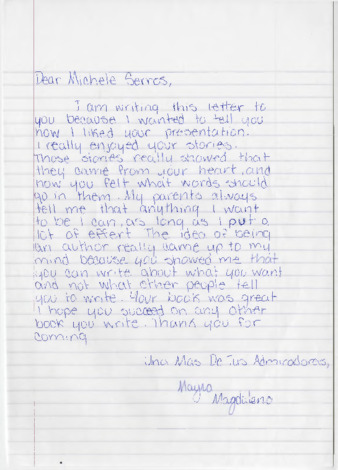 Dear Michele Serros,
I am writing this letter to
you because I wanted to tell you
how I liked your presentation.
I really enjoyed your stories.
Those stories really showed that
they came from your heart, and
how you felt what words should
go in them. My parents always
tell me that anything I want
to be I can, as long as I put a
lot of effert. The idea of being
an author really came up to my
mind because you showed me that
you can write about what you want
and not what other people tell
you to write. Your book was great
I hope you succeed on any other
book you write. Thank you for
coming
Una Mas De Tus Admiradoras,
Mayra
Magdaleno